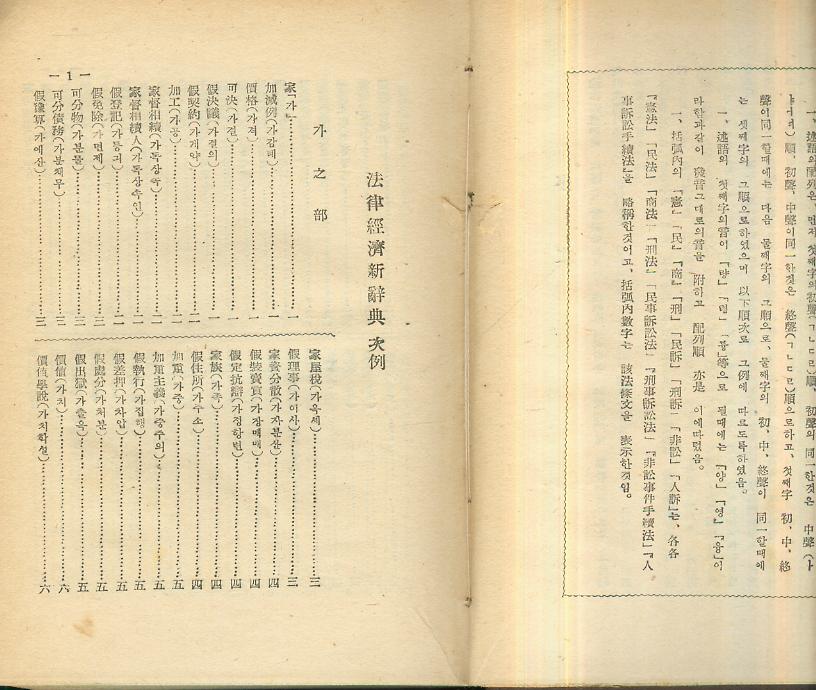 一、述語의配列은、먼저 첫째字의初聲(ㄱㄴㄷㄹ)順、初聲의 同一한것은 中聲(ㅏ
ㅑㅓㅕ)順、初聲、中聲이同一한것은 終聲(ㄱㄴㄷㄹ)順으로하고、첫째字 初、中、終
聲이同一할때에는 다음 둘째字의 그順으로、둘째字의 初、中、終聲이 同一할때에
는 셋째字의 그順으로하였으며 以下順次로 그例에 따르도록하였음。
一、述語의 첫째字의音이「량」「령」「륭」等으로 될때에는「양」「영」「융」이
라함과같이 發音그대로의音을 附하고 配列順 亦是 이에따렸음。
一、括弧內의「憲」「民」「商」「刑」「民訴」「刑訴」「非訟」「人訴」는、各各
「憲法」「民法」「商法」「刑法」「民事訴訟法」「刑事訴訟法」「非訟事件手續法」「人
事訴訟手續法」을 略稱한것이고、括弧內數字는 該法條文을 表示한것임。
法律經濟新辭典 次例
가之部
家「가」 一
加減例(가감례) 一
價格(가격) 一
可決(가결) 一
假決議(가결의) 一
假契約(가계약) 二
加工(가공) 二
家督相續(가독상속) 二
家督相續人(가독상속인) 二
假登記(가등긔) 二
假免除(가면제) 三
可分物(가분물) 三
可分債務(가분채무) 三
假豫算(가예산) 三
家屋稅(가옥세) 三
假理事(가이사) 三
家資分散(가자분산) 四
假裝賣買(가장매매) 四
假定抗辯(가정항변) 四
家族(가족) 四
假住所(가주소) 四
加重(가중) 五
加重主義(가중주의) 五
假執行(가집행) 五
假差押(가차압) 五
假處分(가처분) 五
假出獄(가출옥) 五
價値(가치) 六
價値學說(가치학설) 六
— 1 —